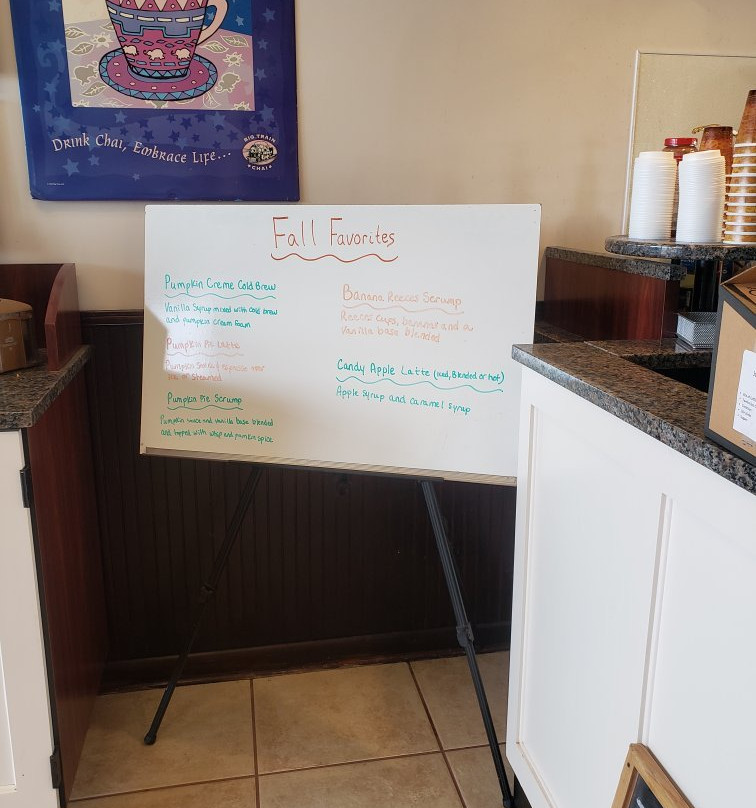 Drink Chai, Embrace Life...
BIG TRAIN
CHAI
Fall Favorites
Pumpkin Creme Cold Brew
Vanilla Syrup mixed with cold brew
and pumpkin cream foam
Pumpkin Pie Latte
Pumpkin Sauce + espresso over
ice or steamed
Pumpkin Pie Scrump
Pumpkin sauce and vanilla base blended
and topped with whip and pumpkin spice
Banana Reeces Scrump
Reeces cups, banana and a
vanilla base blended
Candy Apple Latte (iced, Blended or hot)
Apple syrup and caramel syrup